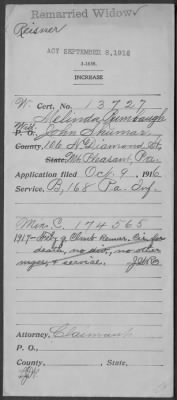 Remarried Widow
Reisner
ACT SEPTEMBER 8, 1916
3-1081.
INCREASE
W. Cert. No. 13727
Melinda Rumbaugh
Wid John Shumar
P. O.,
County, 106 N. Diamond St.
State, Mt. Pleasant, Pa.
Application filed Oct. 9, 1916
Service, B, 168 Pa. Inf.
Min. C. 174565
death, no div., no other
mgr., & service.
Attorney, Claimant
P. O.,
County, , State,